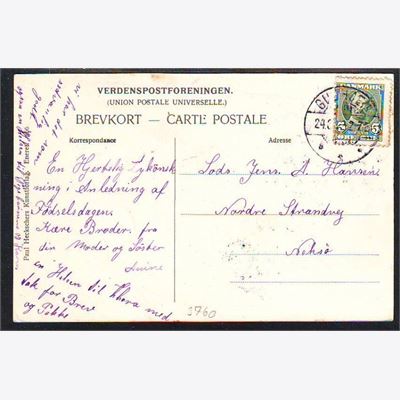 VERDENSPOSTFORENINGEN.
(UNION POSTALE UNIVERSELLE.)
BREVKORT — CARTE POSTALE.
Korrespondance
Adresse
En Hjertelig Lykönsk
ning i Anledning af
Födselsdagen.
Kære Broder. fra
din Moder og Söster
en Hilsen til Thora med
tak for Brev
og
Lods Jens. A. Hansen
Nordre Strandvej
Neksö
3760
vi har det
godt
Paul Heckschers Kunstforlag
DANMARK
5
24.